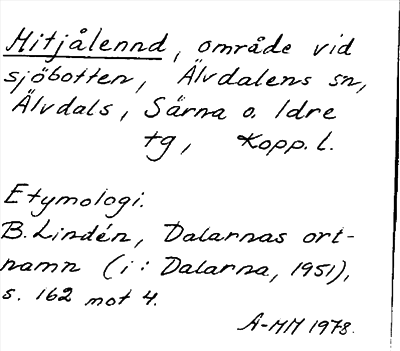 Hitjålennd, område vid
sjöbotten, Älvdalens sn,
Älvdals, Särna o. Idre
tg, Kopp. l.
Etymologi.
B. Lindén, Dalarnas ort-
namn (i: Dalarna, 1951),
s. 162 mot 4.
A-MM 1978.